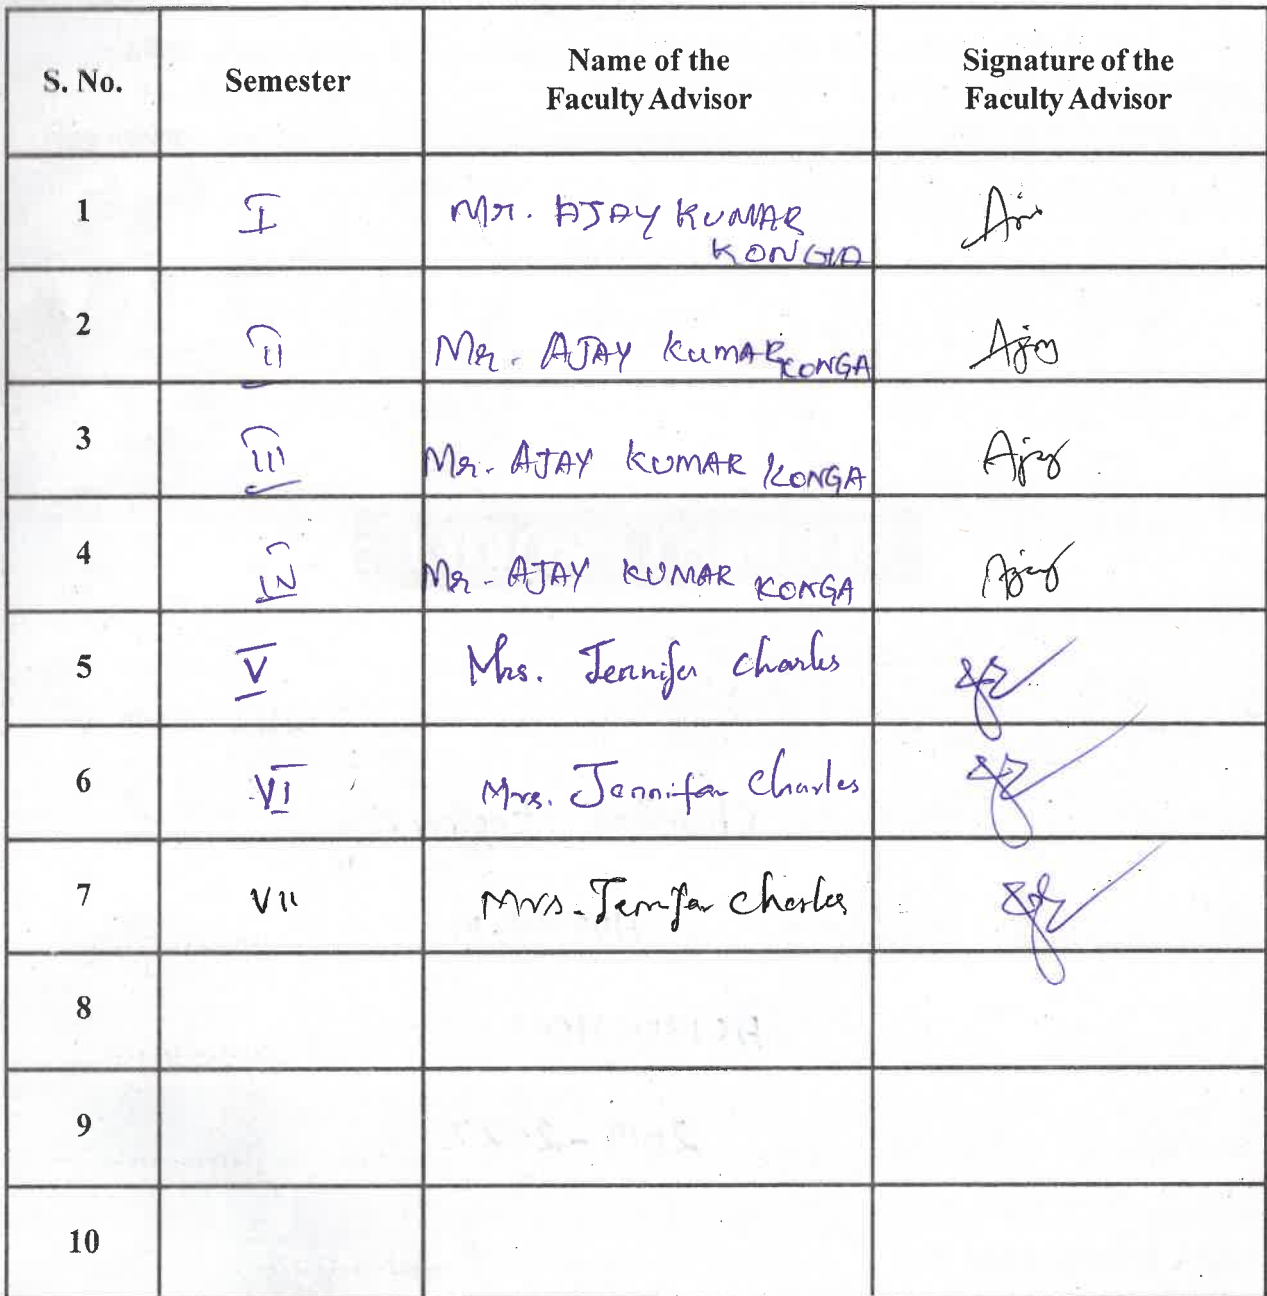 S. No. Semester Name of the Faculty Advisor Signature of the Faculty Advisor
1 I Mr. AJAY KUMAR KONGA
2 II Mr. AJAY KUMAR KONGA Ajay
3 III Mr. AJAY KUMAR KONGA Ajay
4 IV Mr. AJAY KUMAR KONGA Ajay
5 V Mrs. Jennifer Charles
6 VI Mrs. Jennifar Charles
7 VII Mrs. Jennifar Charles
8
9
10